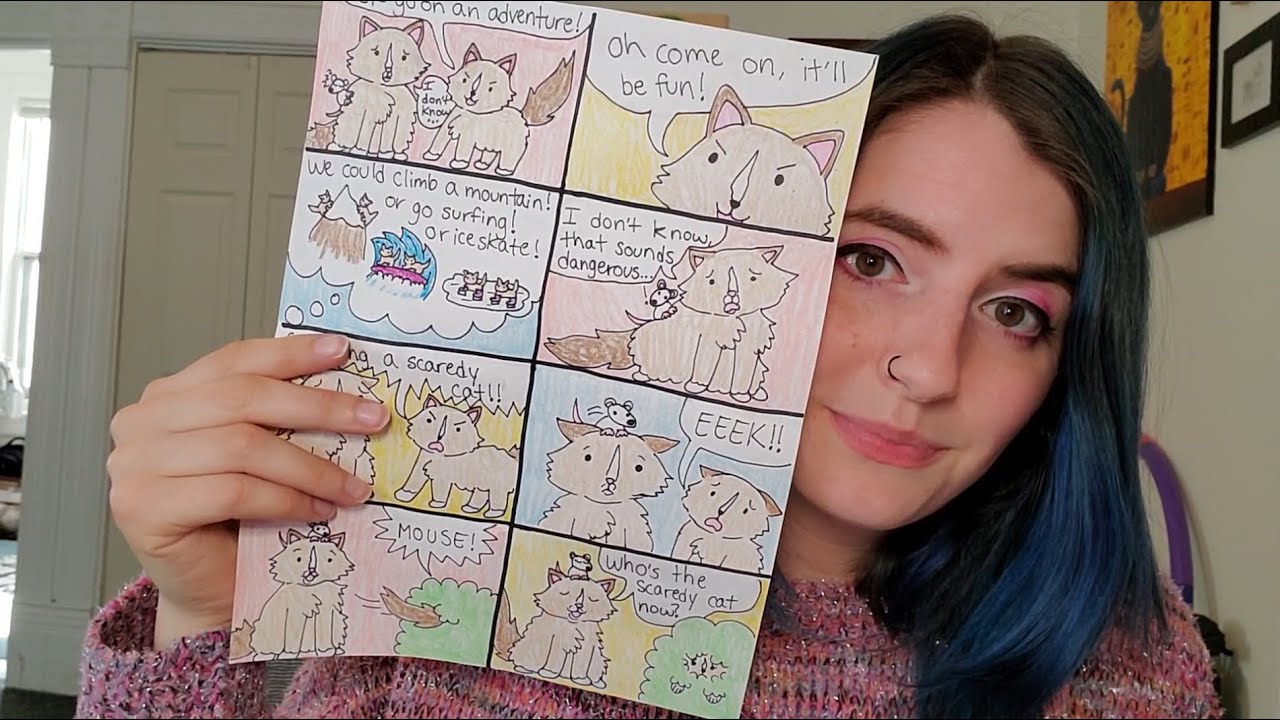 go on an adventure!
I
don't
know
...
oh come on, it'll
be fun!
We could climb a mountain!
or go surfing!
Or ice skate!
I don't know,
that sounds
dangerous...
a scaredy
cat!!
EEEK!!
MOUSE!
Who's the
scaredy cat
now?